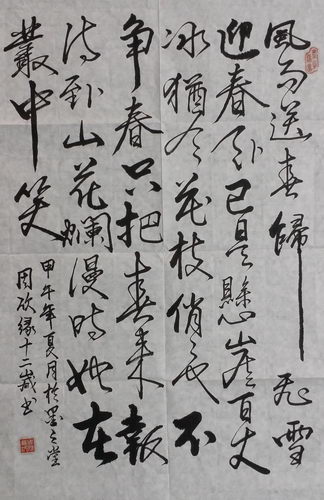 風雨送春歸飛雪
迎春到已是懸崖百丈
冰猶有花枝俏也不
争春只把春来報
待到山花爛漫時她在
叢中笑
甲午年夏月於墨之堂
周缘十二歲书